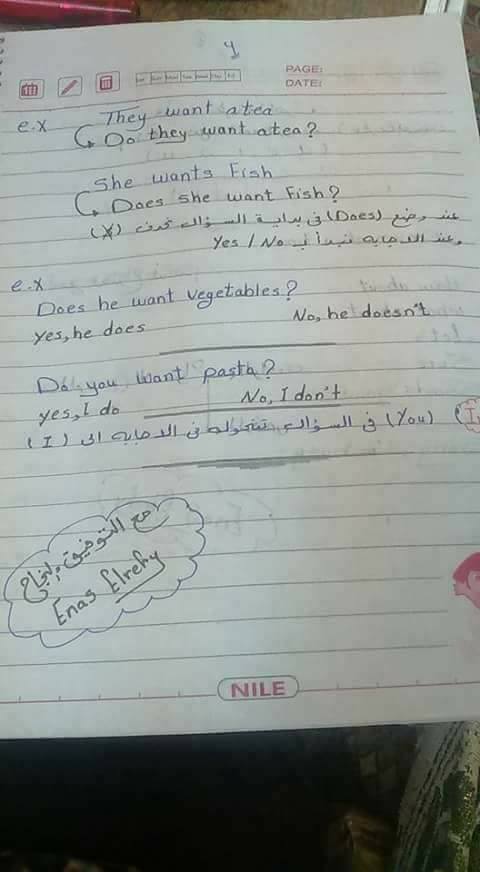 PAGE:
DATE:
e.x They want a tea
Do they want a tea?
She wants Fish
Does she want Fish?
عند وضع (Does) فى بداية السؤال تحذف (s)
وعند الاجابه نبدأ بـ Yes / No
e.x
Does he want vegetables?
yes, he does No, he doesn't
Do you want pasta?
yes, I do No, I don't
(You) فى السؤال تتحول فى الاجابه الى (I)
مع التوفيق والنجاح
Enas Elrefy
NILE